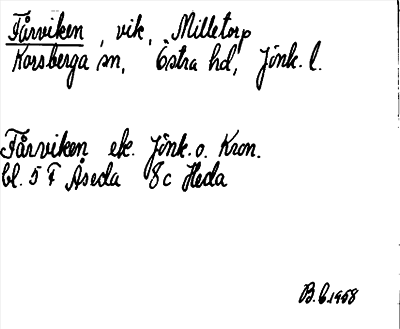 Fårviken, vik, Milletorp
Korsberga sn, Östra hd, Jönk. l.
Fårviken ek. Jönk. o. Kron.
bl. 5 F Åseda 8c Heda
B.E. 1958